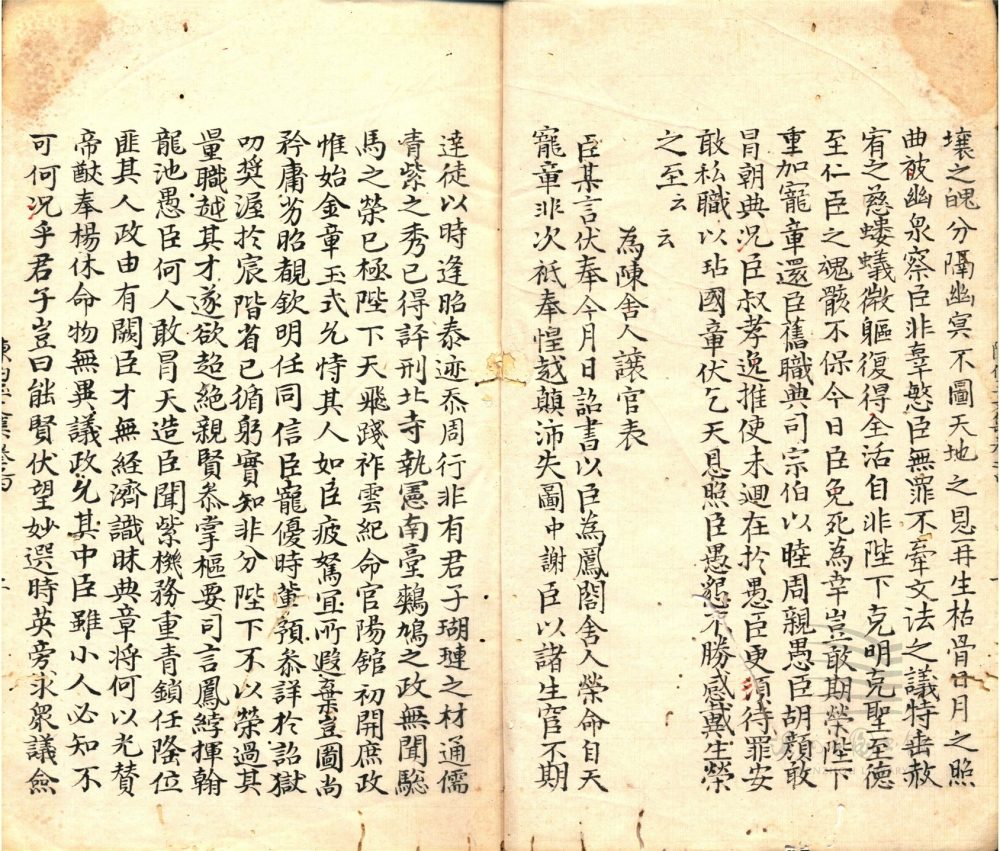 壤之魄分隔幽冥不圖天地之恩再生枯骨日月之照
曲被幽泉察臣非辜慜臣無罪不牽文法之議特垂赦
宥之慈螻蟻微軀復得全活自非陛下克明克聖至德
至仁臣之魂骸不保今日臣免死為幸豈敢期榮陛下
重加寵章還臣舊職典司宗伯以睦周親愚臣胡顏敢
冒朝典況臣叔孝逸推使未迴在於愚臣更須待罪安
敢私職以玷國章伏乞天恩照臣愚懇不勝感戴生榮
之至云云
為陳舍人讓官表
臣某言伏奉今月日詔書以臣為鳳閣舍人榮命自天
寵章非次祗奉惶越顛沛失圖中謝臣以諸生宦不期
達徒以時逢昭泰迹忝周行非有君子瑚璉之材通儒
青紫之秀已得評刑北寺執憲南臺鷞鳩之政無聞驄
馬之榮已極陛下天飛踐祚雲紀命官陽舘初開庶政
惟始金章玉式允恃其人如臣疲駑宜所遐棄豈圖尚
矜庸劣昭覩欽明任同信臣寵優時輩預叅詳於詔獄
叨奨渥於宸階省已循躬實知非分陛下不以榮過其
量職越其才遂欲超絕親賢叅掌樞要司言鳳綍揮翰
龍池愚臣何人敢冒天造臣聞紫機務重青鎖任隆位
匪其人政由有闕臣才無経濟識昧典章将何以光賛
帝猷奉楊休命物無異議政允其中臣雖小人必知不
可何況乎君子豈曰能賢伏望妙選時英旁求衆議僉